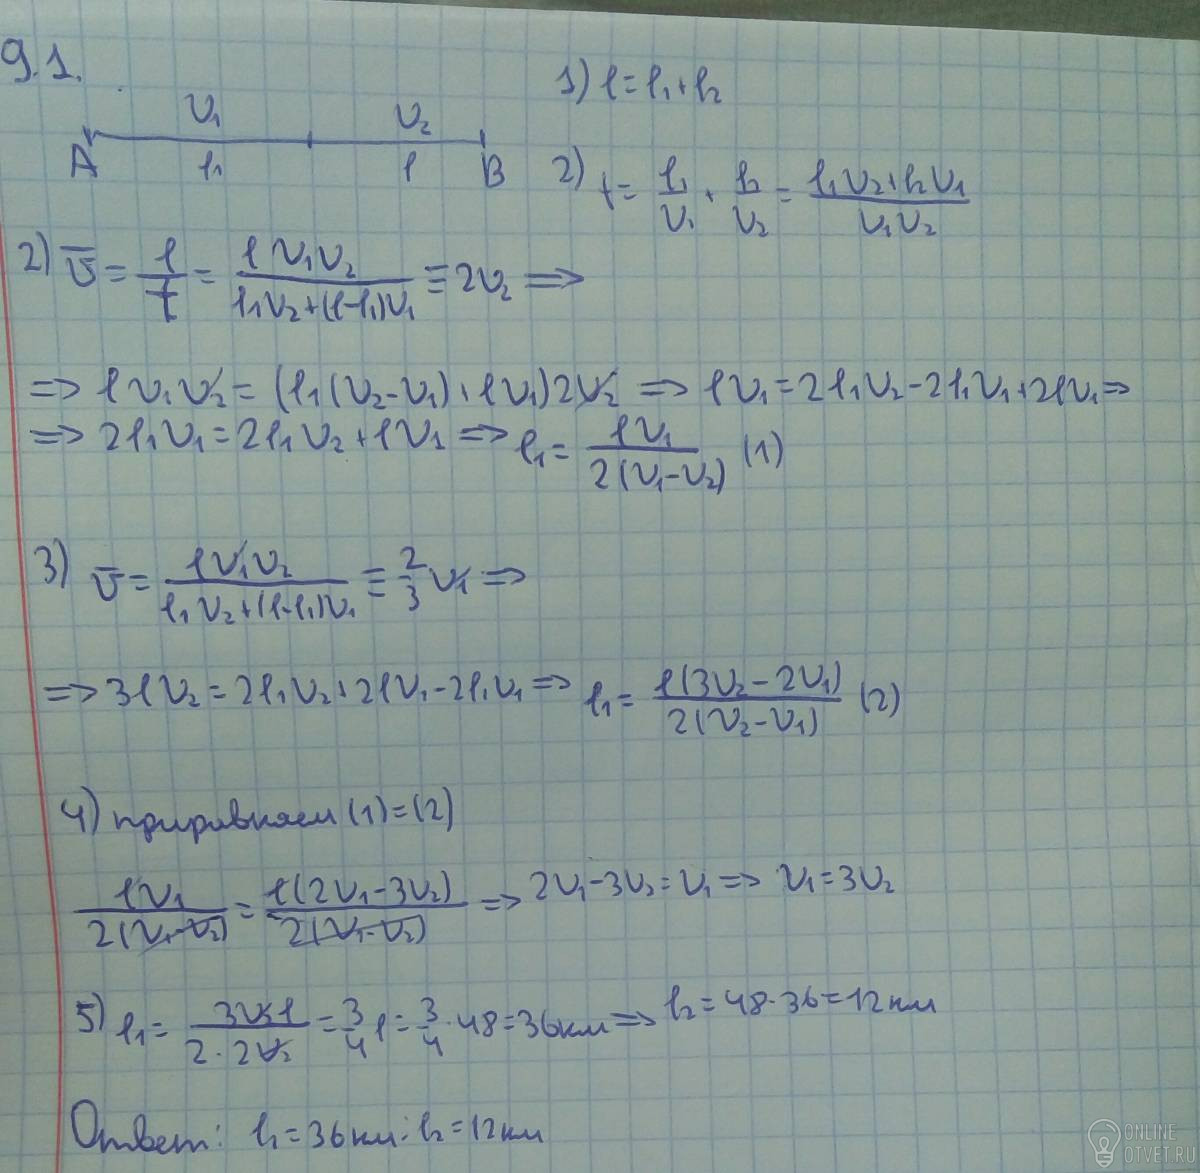 9.1.
1) l = l₁ + l₂
v₁ v₂
A l₁ l B
2) t = l₁/v₁ + l₂/v₂ = (l₁v₂ + l₂v₁)/(v₁v₂)
2) v̅ = l/t = (l v₁v₂)/(l₁v₂ + (l-l₁)v₁) ≡ 2v₂ =>
=> l v₁v₂ = (l₁(v₂-v₁) + lv₁)2v₂ => lv₁ = 2l₁v₂ - 2l₁v₁ + 2lv₁ =>
=> 2l₁v₁ = 2l₁v₂ + lv₁ => l₁ = lv₁/(2(v₁-v₂)) (1)
3) v̅ = (lv₁v₂)/(l₁v₂ + (l-l₁)v₁) ≡ 2/3 v₁ =>
=> 3lv₂ = 2l₁v₂ + 2lv₁ - 2l₁v₁ => l₁ = l(3v₂ - 2v₁)/(2(v₂-v₁)) (2)
4) приравняем (1)=(2)
lv₁/(2(v₁-v₂)) = l(2v₁-3v₂)/(2(v₁-v₂)) => 2v₁-3v₂ = v₁ => v₁ = 3v₂
5) l₁ = 3v₂l/(2·2v₂) = 3/4 l = 3/4 · 48 = 36км => l₂ = 48-36 = 12км
Ответ: l₁ = 36км; l₂ = 12км
ONLINE
OTVET.RU